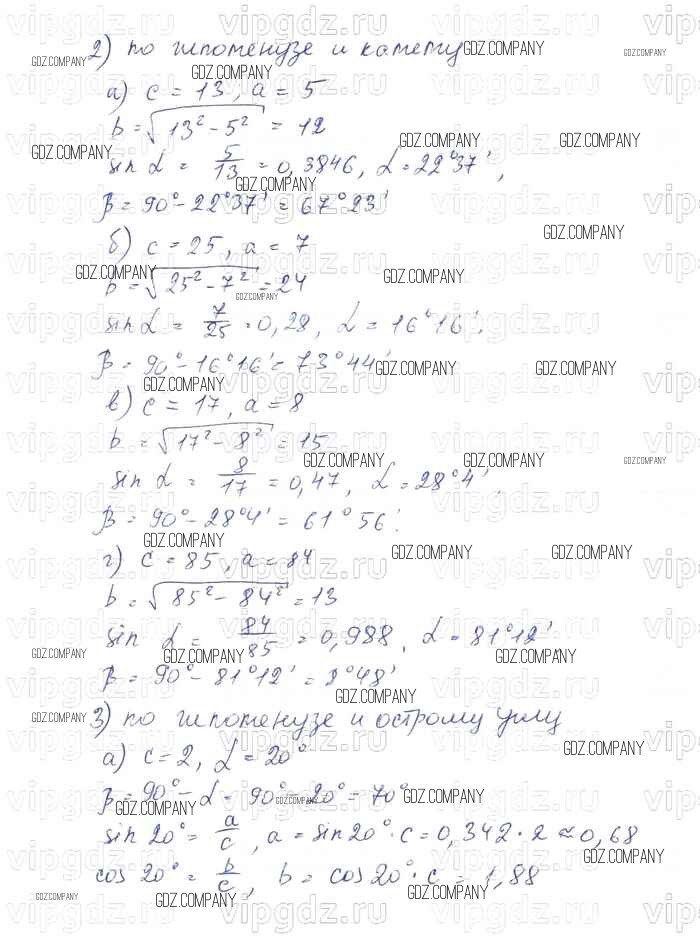 2) по гипотенузе и катету
а) c = 13, a = 5
b = √13² - 5² = 12
sin α = 5/13 = 0,3846, α = 22°37',
β = 90° - 22°37' = 67°23'
б) c = 25, a = 7
b = √25² - 7² = 24
sin α = 7/25 = 0,28, α = 16°16'.
β = 90° - 16°16' = 73°44'
в) c = 17, a = 8
b = √17² - 8² = 15
sin α = 8/17 = 0,47, α = 28°4'.
β = 90° - 28°4' = 61°56'.
г) c = 85, a = 84
b = √85² - 84² = 13
sin α = 84/85 = 0,988, α = 81°12'
β = 90° - 81°12' = 8°48'
3) по гипотенузе и острому углу
а) c = 2, α = 20°
β = 90° - α = 90° - 20° = 70°
sin 20° = a/c, a = sin 20° · c = 0,342 · 2 ≈ 0,68
cos 20° = b/c, b = cos 20° · c = 1,88
GDZ.COMPANY
vipgdz.ru